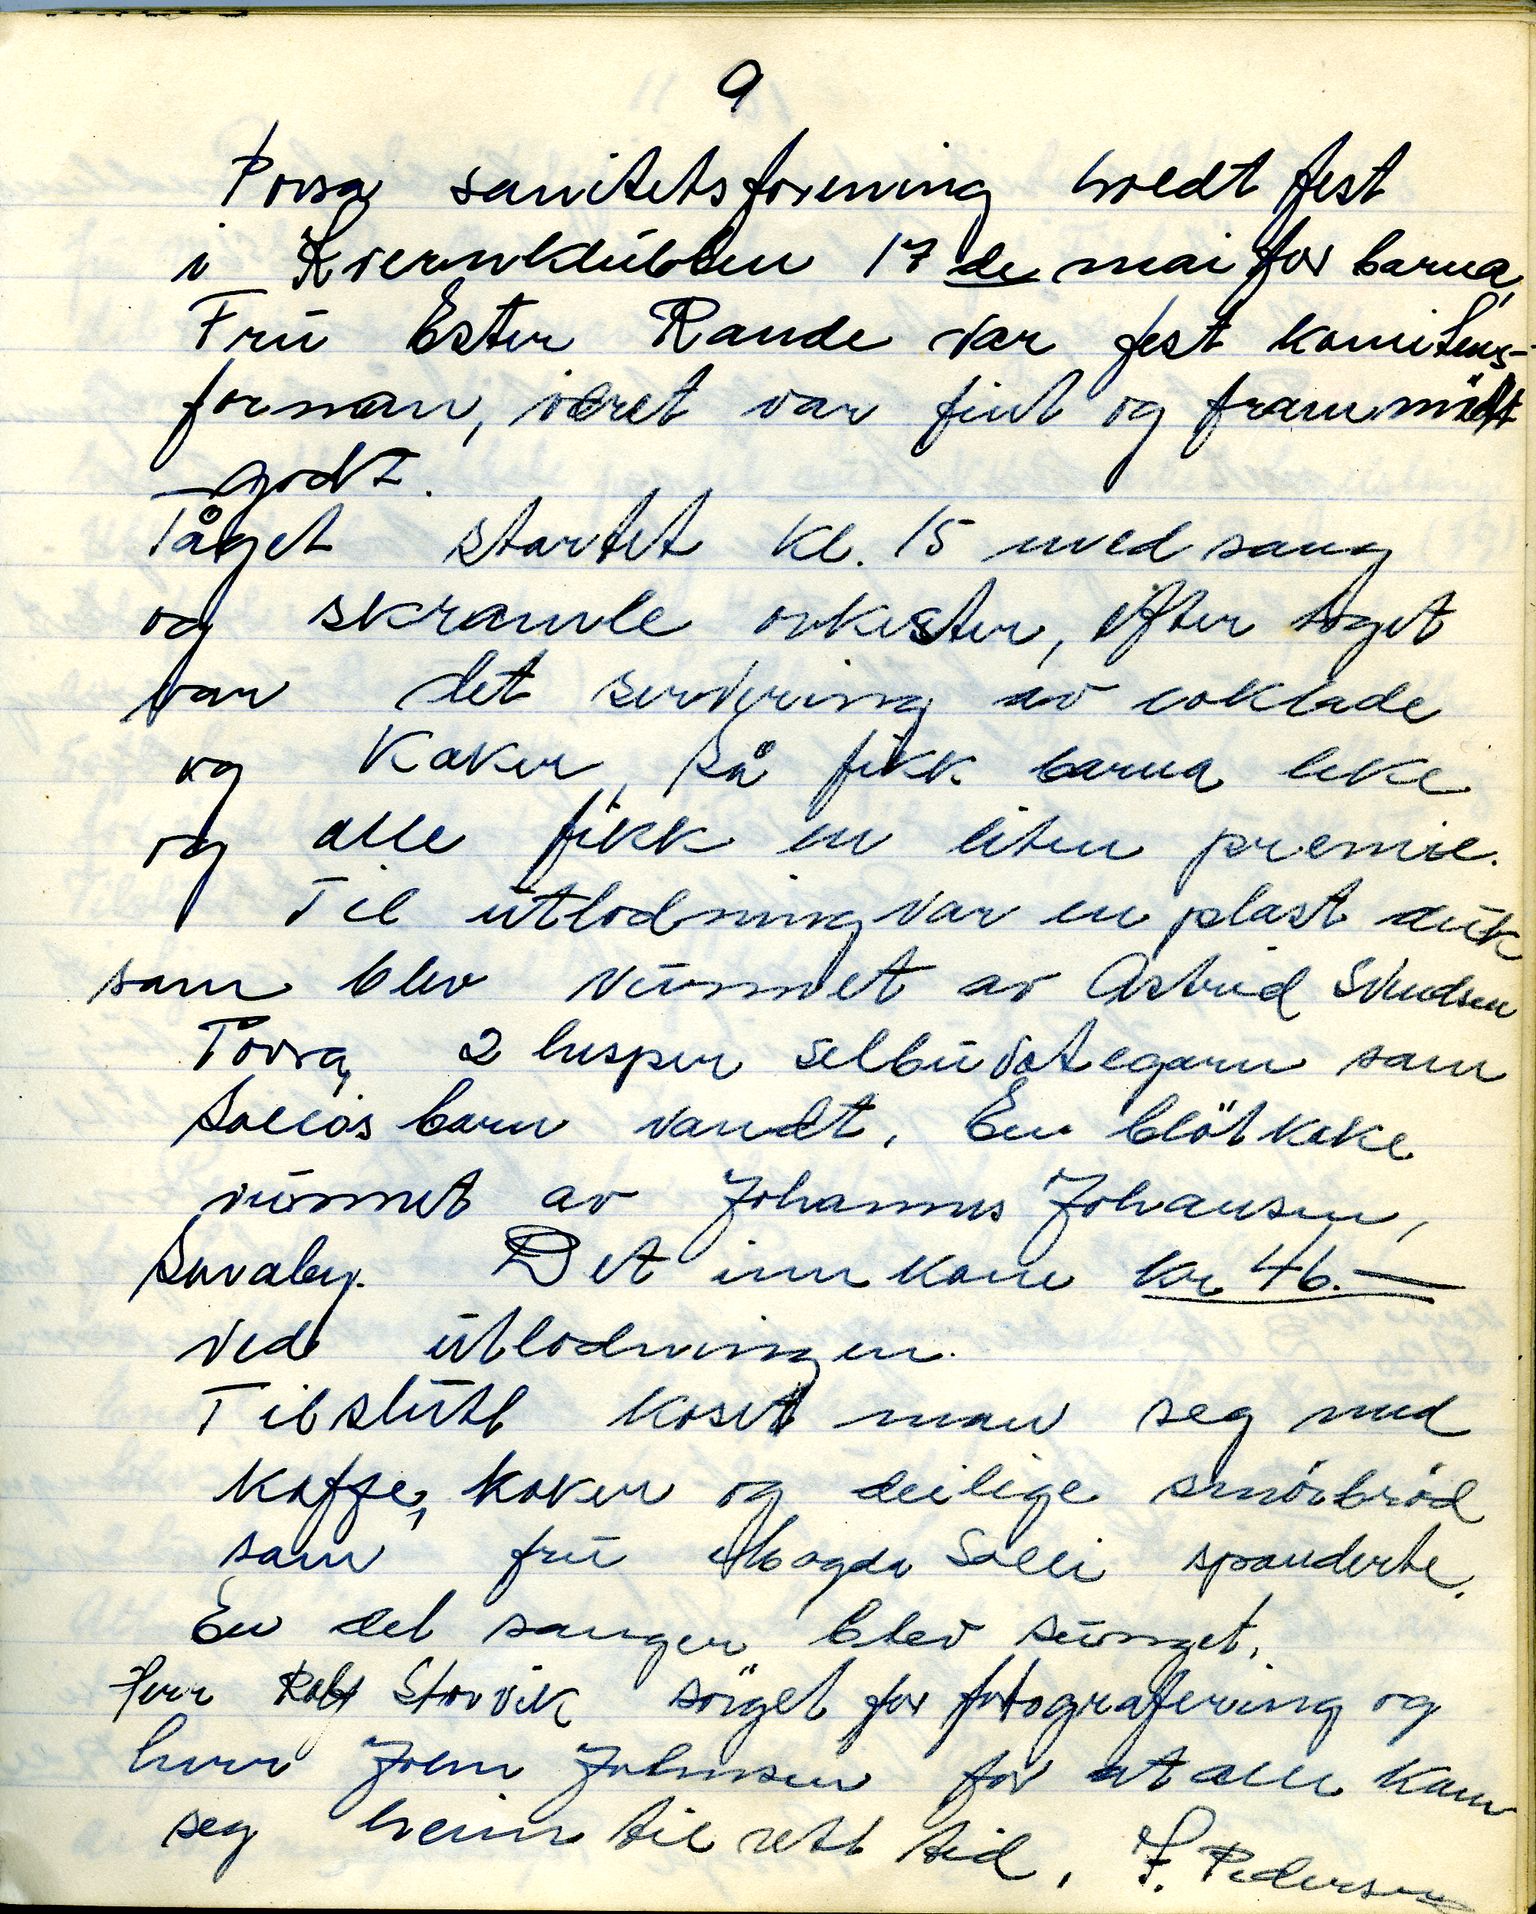 9
Porsa sanitetsforening holdt fest
i Kvernklubben 17 de mai for barna,
Fru Ester Rande var fest komiteens-
forman, været var fint og frammött
godt.
Tåget startet kl. 15 med sang
og skramle orkester, efter toget
var det servering av coklade
og Kaker, så fikk barna leke
og alle fikk en liten premie.
Til utlodning var en plast duk
som blev vunnet av Astrid Svendsen
Porsa, 2 hesper selbuvotegarn som
Sollis barn vandt. En blötkake
vunnet av Johannes Johansen,
Survaby. Det innkom kr 46.—
ved utlodningen.
Tilslutt koset man seg med
kaffe, kaker og deilige smörbröd
som fru Magda Solli spanderte.
En del sanger blev sunget.
Herr Rolf Storvik sörget for fotografering og
herr John Johnsen for at alle kom
seg heim til rett tid. F. Pedersen